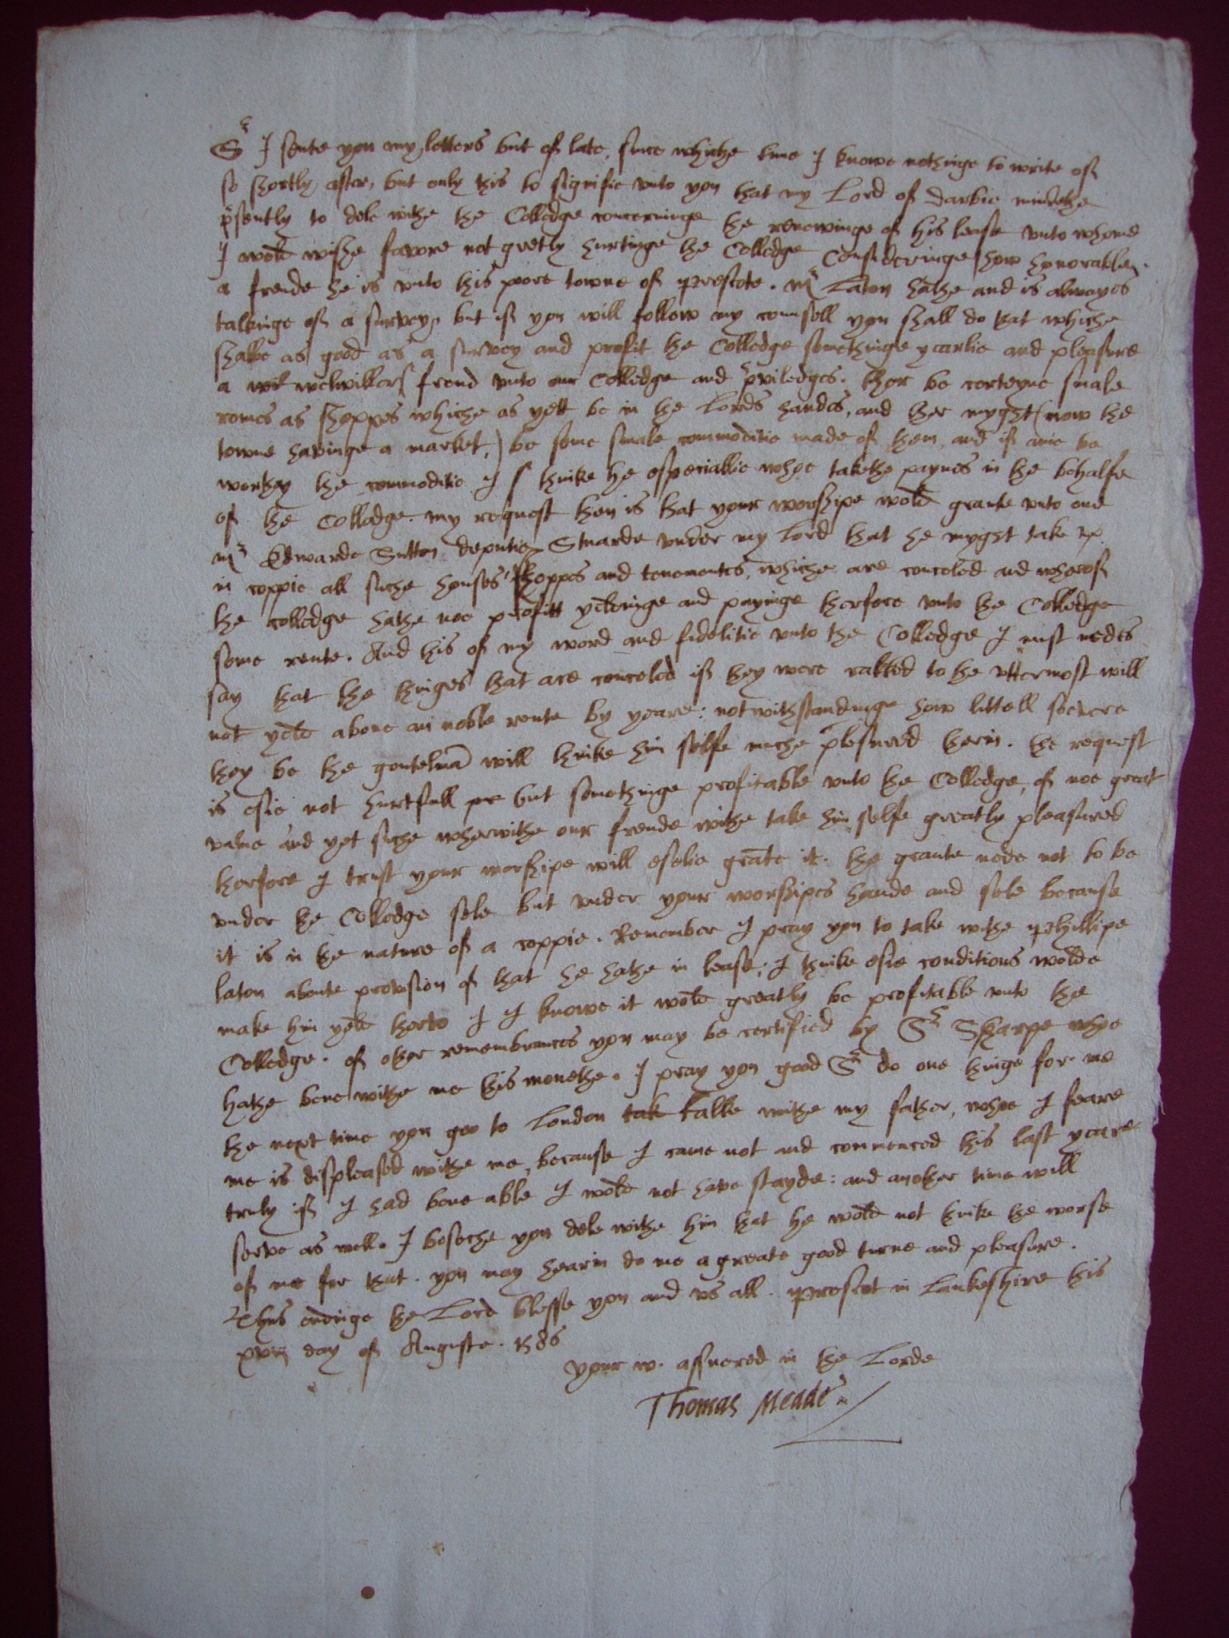 Sr I sente you my letters but of late, since whiche time I knowe nothinge to write of
so shortly after, but only this to signifie unto you that my Lord of Darbie mindethe
psently to dele withe the Colledge concerninge the renewinge of his lease unto whome
I wold wishe favore not gretly hurtinge the Colledge Consideringe how honorable
a frende he is unto this poore towne of Prescote. Mr Laton hathe and is alwayes
talkinge of a survey, but if you will follow my counsell you shall do that whiche
shalbe as good as a survey and profit the Colledge somethinge yearlie and pleasure
a welwiller frend unto our Colledge and priviledges. ther be certeyne smale
romes as shoppes whiche as yett be in the Lords handes, and ther myght (now the
towne havinge a market,) be some smale commoditie made of them, and if anie be
worthy the commoditie I thinke he especiallie whoe takethe paynes in the behalfe
of the Colledge. my request then is that your worshipe wold graunte unto one
Mr Edwarde Sutton deputie Stuarde under my Lord that he myght take up
in coppie all suche houses shoppes and tenementes, whiche are conceled and wherof
the colledge hathe noe profitt yeldinge and payinge therfore unto the Colledge
some rente. And this of my word and fidelitie unto the Colledge I must nedes
say that the thinges that are conceled if they were racked to the uttermost will
not yeld above an noble rente by yeare: notwithstandinge how littell soevere
they be the gentelmā will thinke him selfe muche plesured therin. the request
is esie not hurtfull but somethinge profitable unto the Colledge, of noe great
value and yet suche wherwithe our frende withe take him selfe greatly pleasured
therfore I trust your worshipe will eselie grāte it. the graunte nede not to be
under the Colledge sele but under your worshipes hande and sele because
it is in the nature of a coppie. Remember I pray you to take withe Phillipe
laton aboute provision of that he hathe in lease; I thinke esie conditions wolde
make him yeld therto I knowe it wold greatly be profitable unto the
Colledge. of other remembrances you may be certified by Sr Sharpe whoe
hathe bene withe me this monethe. I pray you good Sr do one thinge for me
the next time you goe to London tak talke withe my father, whoe I feare
me is displeased withe me, because I came not and commenced this last yeare
truly if I had bene able I wold not have stayde: and another time will
serve as well. I beseche you dele withe him that he wold not thinke the worse
of me for that. you may hearin do me a greate good turne and pleasure.
Thus endinge the Lord blesse you and us all. Prescot in Lankeshire this
day of Auguste. 1586
your w. assuered in the Lorde
Thomas Meade